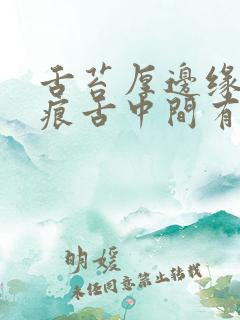 舌苔厚邊缘
痕舌中間有
明媛
未经同意禁止转载